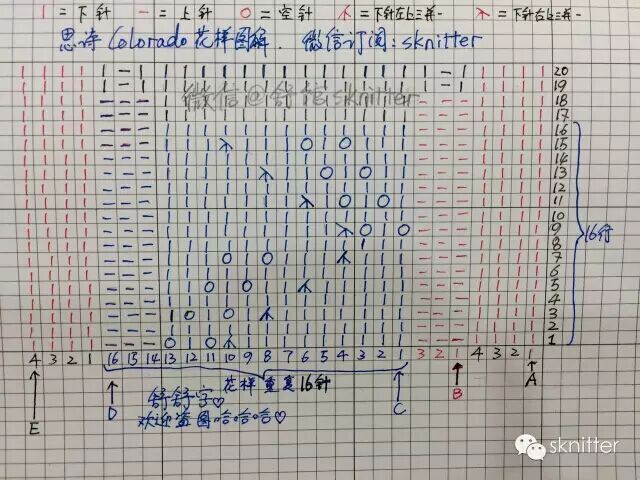 | = 下针 — = 上针 O = 空针 人 = 下针左上三并一 木 = 下针右上三并一
思诗 Colorado 花样图解. 微信订阅: sknitter
微信@舒舒sknitter
20
19
18
17
16
15
14
13
12
11
10
9
8
7
6
5
4
3
2
1
16行
4 3 2 1 16 15 14 13 12 11 10 9 8 7 6 5 4 3 2 1 3 2 1 4 3 2 1
花样重复16针
E D C B A
舒舒字♡
欢迎盗图哈哈哈♡
sknitter